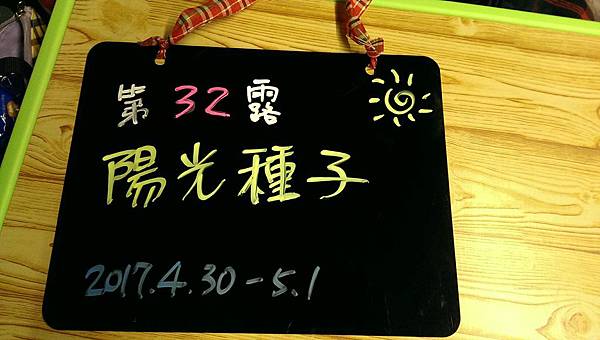 第32露
陽光種子
2017.4.30-5.1